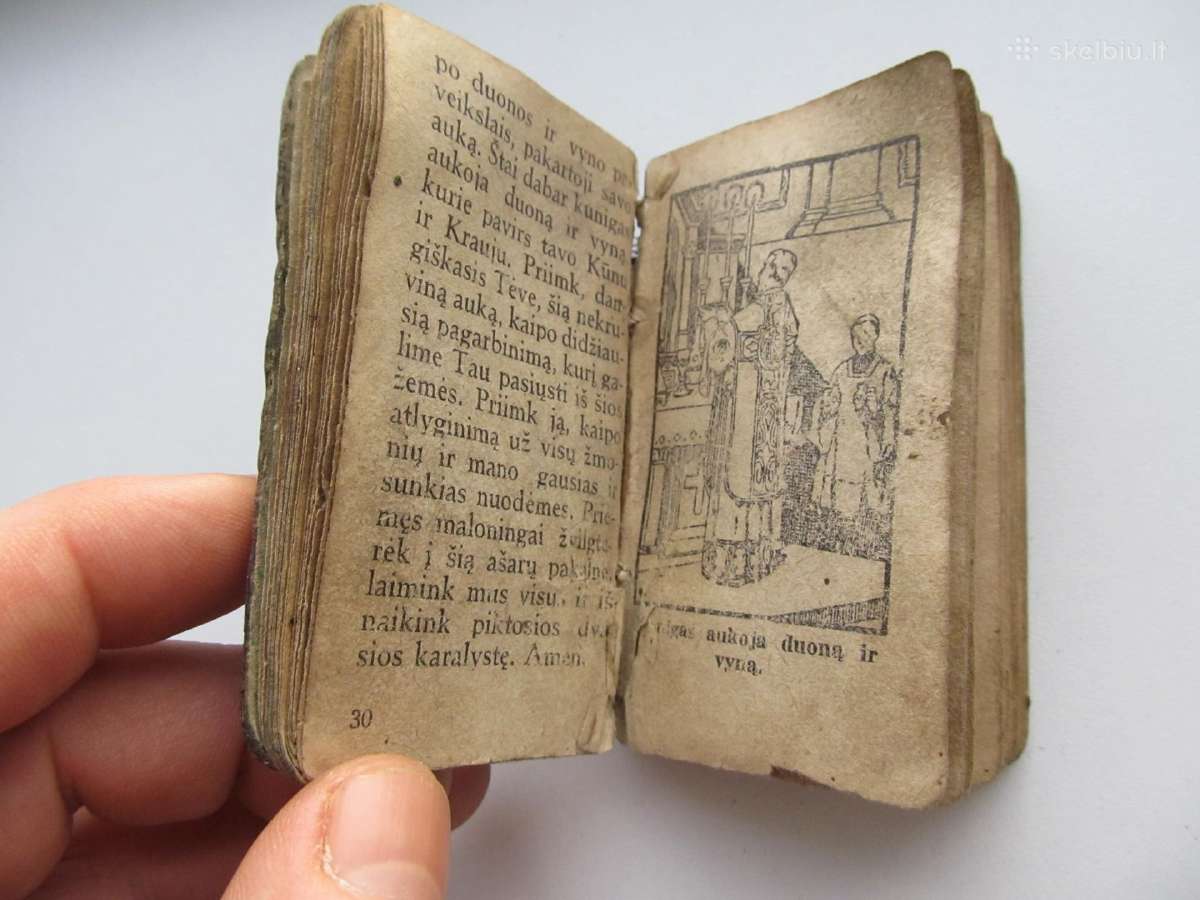 skelbiu.lt
po duonos ir vyno
veikslais, pakartoji savo
auką. Štai dabar kunigas
aukoja duoną ir vyną,
kurie pavirs tavo Kūnu
ir Krauju. Priimk, dan-
giškasis Tėve, šią nekru-
viną auką, kaipo didžiau-
sią pagarbinimą, kurį ga-
lime Tau pasiųsti iš šios
žemės. Priimk ją, kaipo
atlyginimą už visų žmo-
nių ir mano gausias ir
sunkias nuodėmes. Prie-
męs maloningai žvilgte-
rėk į šią ašarų pakalnę,
laimink mus visus ir iš-
naikink piktosios
sios karalystę. Amen.
30
aukoja duoną ir
vyną.